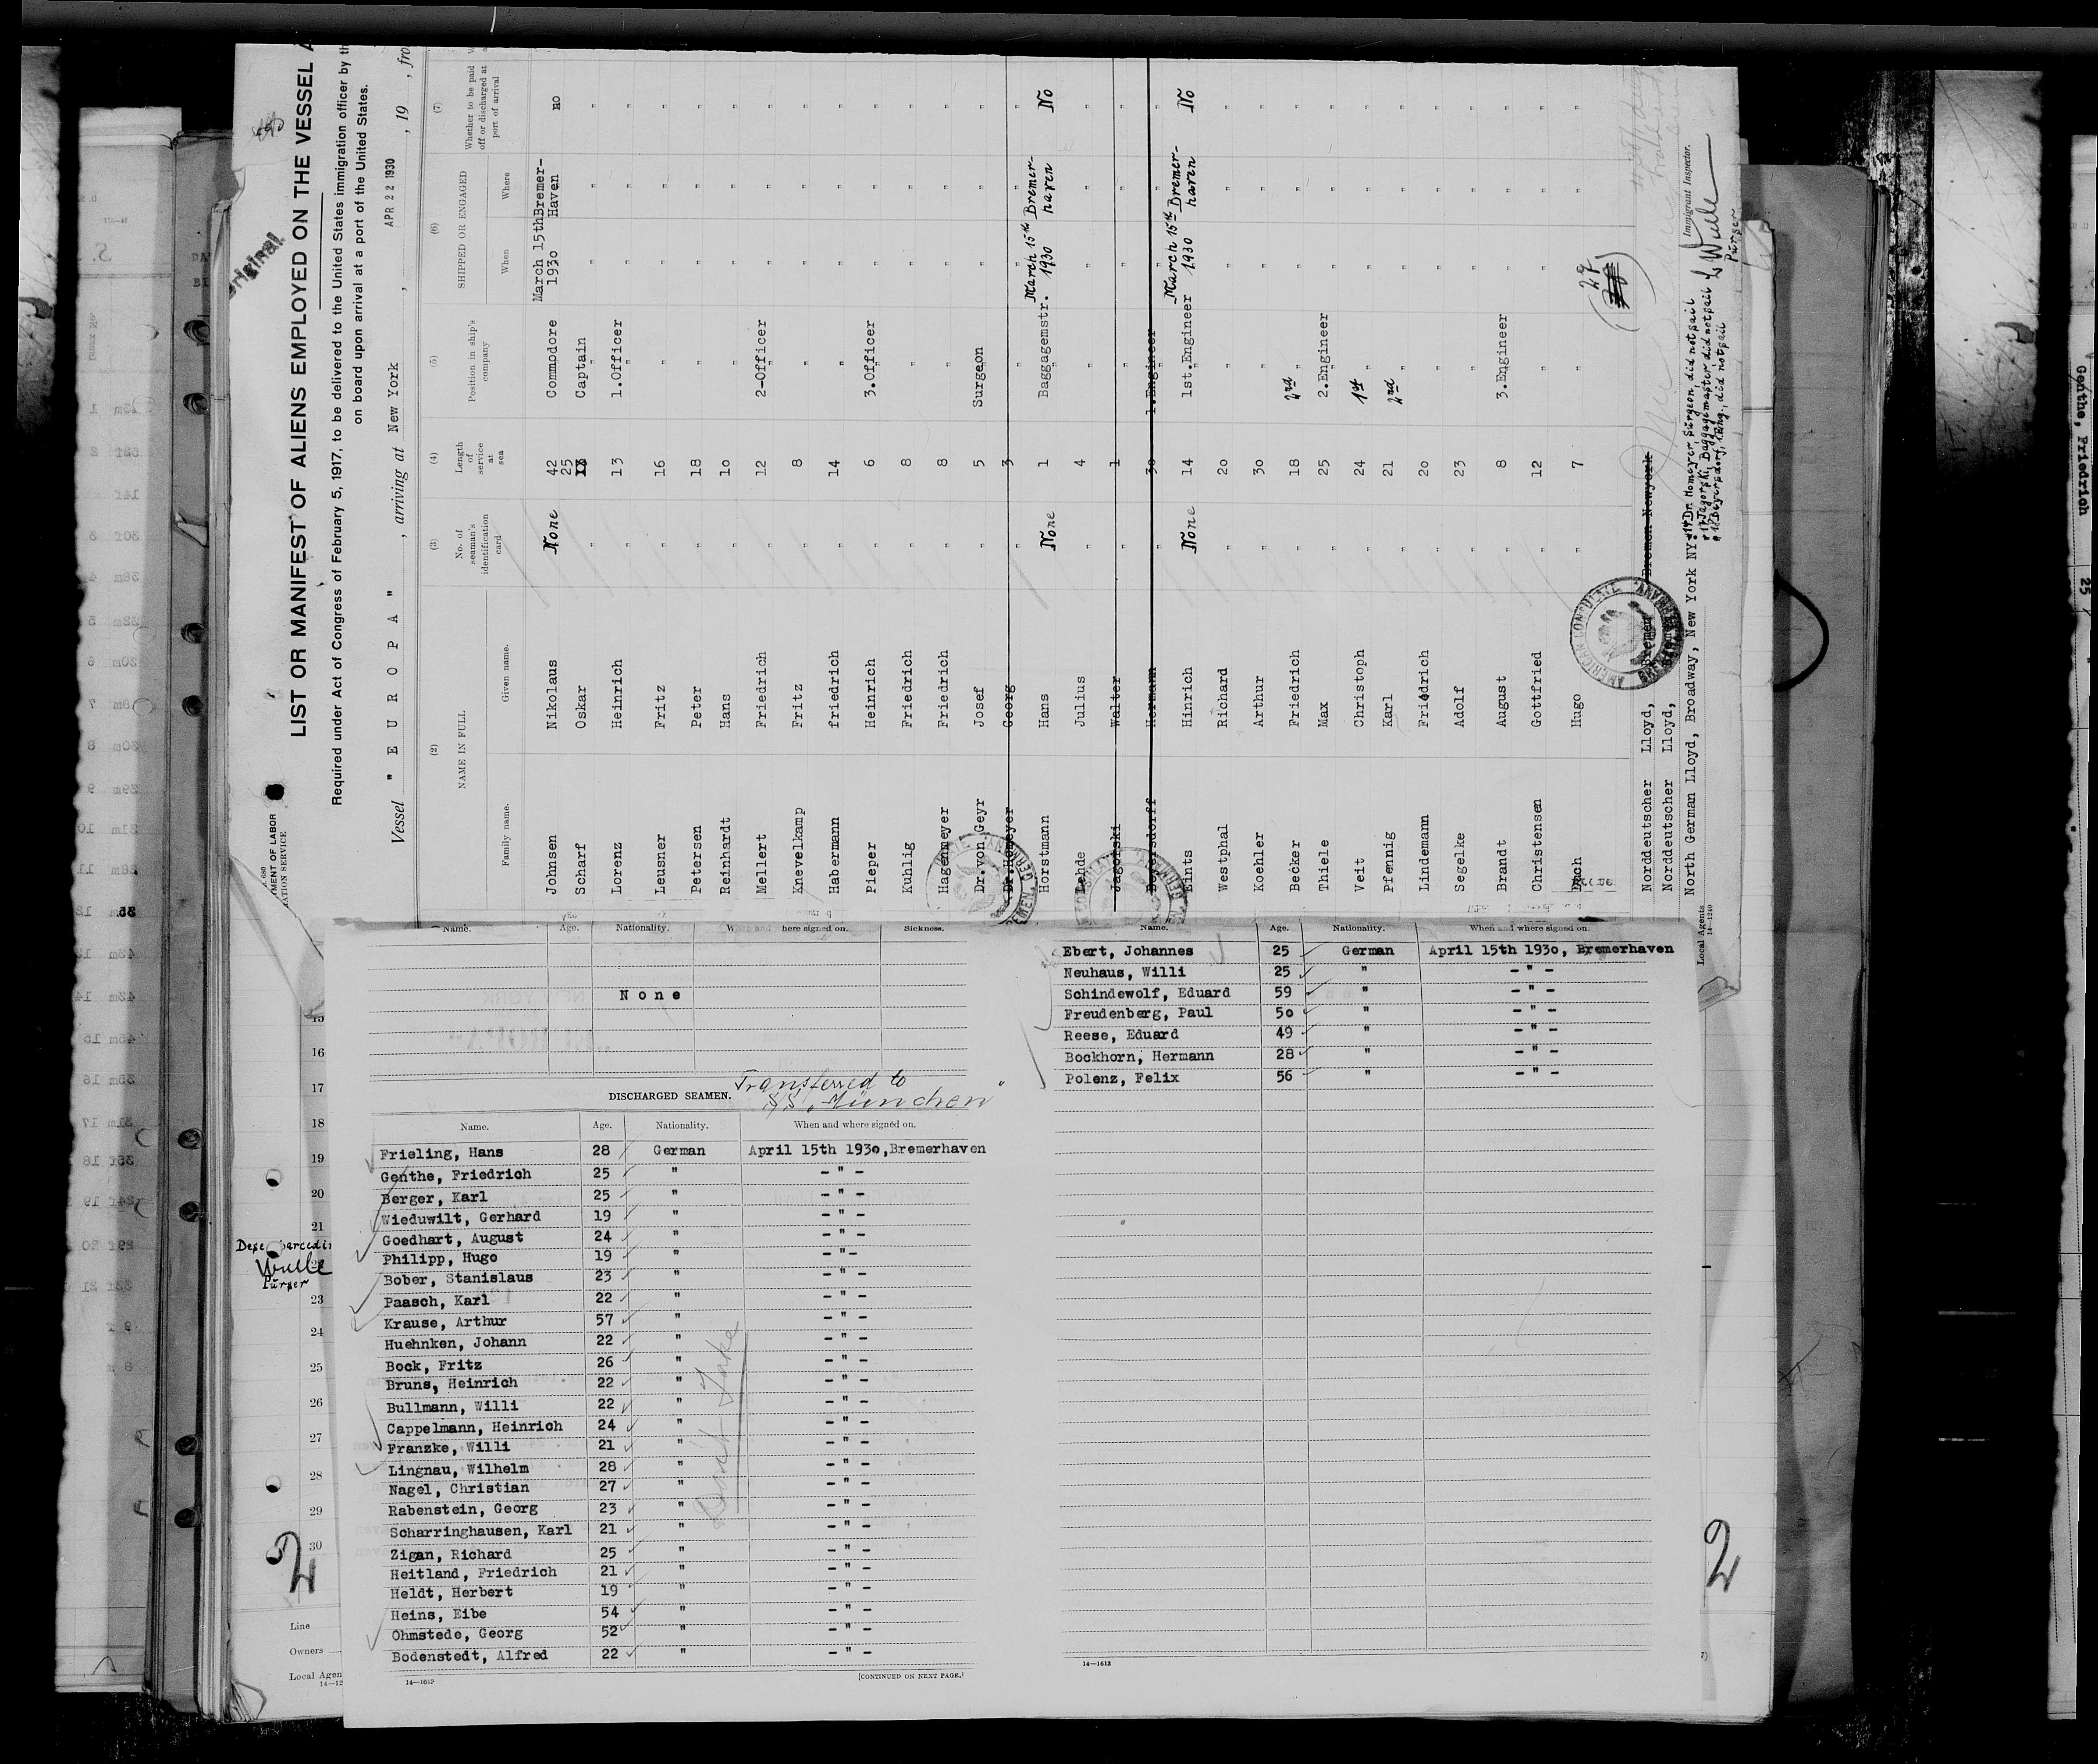 Original
LIST OR MANIFEST OF ALIENS EMPLOYED ON THE VESSEL A
Required under Act of Congress of February 5, 1917, to be delivered to the United States immigration officer by th
on board upon arrival at a port of the United States.
TMENT OF LABOR
RATION SERVICE
Vessel " E U R O P A " , arriving at New York , APR 22 1930 , 19 , fro
(2) (3) (4) (5) (6) (7)
NAME IN FULL No. of seaman's identification card Length of service at sea Position in ship's company SHIPPED OR ENGAGED Whether to be paid off or discharged at port of arrival
Family name. Given name. When Where
Johnsen Nikolaus None 42 Commodore March 15th 1930 Bremer-Haven no
Scharf Oskar " 25 Captain " " "
Lorenz Heinrich " 13 1.Officer " " "
Leusner Fritz " 16 " " " "
Petersen Peter " 18 " " " "
Reinhardt Hans " 10 " " " "
Mellert Friedrich " 12 2-Officer " " "
Knevelkamp Fritz " 8 " " " "
Habermann friedrich " 14 " " " "
Pieper Heinrich " 6 3.Officer " " "
Kuhlig Friedrich " 8 " " " "
Hagenmeyer Friedrich " 8 " " " "
Dr.von Geyr Josef " 5 Surgeon " " "
Dr.Homeyer Georg " 3 " " " "
Horstmann Hans None 1 Baggagemstr. March 15th 1930 Bremer-haven No
Lehde Julius " 4 " " " "
Jagorski Walter " 1 " " " "
Beyersdorff Hermann " 30 1.Engineer " " "
Eints Hinrich None 14 1st.Engineer March 15th 1930 Bremer-haven No
Westphal Richard " 20 " " " "
Koehler Arthur " 30 " " " "
Becker Friedrich " 18 2nd " " " "
Thiele Max " 25 2.Engineer " " "
Veit Christoph " 24 1st " " " "
Pfennig Karl " 21 2nd " " " "
Lindemann Friedrich " 20 " " " "
Segelke Adolf " 23 " " " "
Brandt August " 8 3.Engineer " " "
Christensen Gottfried " 12 " " " "
Dach Hugo " 7 " " "
29
Norddeutscher Lloyd, Bremen Bremen Newyork
Norddeutscher Lloyd, Bremen
North German Lloyd, Broadway, New York NY
Dr. Homeyer Surgeon did not sail
Jagorski, Baggagemaster, did not sail
Beyersdorf, 1.Eng., did not sail
Wulle
Purser
Immigrant Inspector.
Local Agents
14—1240
AMERICAN CONSULATE BREMEN, GERMANY
Name. Age. Nationality. When and where signed on. Sickness.
None
DISCHARGED SEAMEN. Transferred to
S/S. "München"
Name. Age. Nationality. When and where signed on.
Frieling, Hans 28 German April 15th 1930,Bremerhaven
Genthe, Friedrich 25 " - " -
Berger, Karl 25 " - " -
Wieduwilt, Gerhard 19 " - " -
Goedhart, August 24 " - " -
Philipp, Hugo 19 " - " -
Bober, Stanislaus 23 " - " -
Paasch, Karl 22 " - " -
Krause, Arthur 57 " - " -
Huehnken, Johann 22 " - " -
Bock, Fritz 26 " - " -
Bruns, Heinrich 22 " - " -
Bullmann, Willi 22 " - " -
Cappelmann, Heinrich 24 " - " -
Franzke, Willi 21 " - " -
Lingnau, Wilhelm 28 " - " -
Nagel, Christian 27 " - " -
Rabenstein, Georg 23 " - " -
Scharringhausen, Karl 21 " - " -
Zigan, Richard 25 " - " -
Heitland, Friedrich 21 " - " -
Heldt, Herbert 19 " - " -
Heins, Eibe 54 " - " -
Ohmstede, Georg 52 " - " -
Bodenstedt, Alfred 22 " - " -
14—1613 [CONTINUED ON NEXT PAGE.]
Name. Age. Nationality. When and where signed on.
Ebert, Johannes 25 German April 15th 1930, Bremerhaven
Neuhaus, Willi 25 " - " -
Schindewolf, Eduard 59 " - " -
Freudenberg, Paul 50 " - " -
Reese, Eduard 49 " - " -
Bockhorn, Hermann 28 " - " -
Polenz, Felix 56 " - " -
14—1613
16
17
18
19
20
21
Wulle
Purser
23
24
25
26
27
28
29
30
2
Line
Owners
Local Agen
14—12
2
Genthe, Friedrich 25